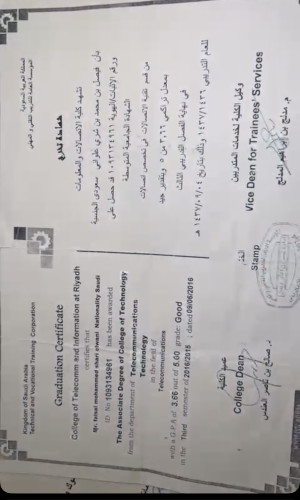 Kingdom of Saudi Arabia
Technical and Vocational Training Corporation
Graduation Certificate
College of Telecomm and Information at Riyadh
certifies that
Nationality Saudi
ID. No 1093134961 has been awarded
The Associate Degree of College of Technology
from the department of Telecommunications
Technology
in the field of
Telecommunications
with a G.P.A of 3.66 out of 5.00 grade Good
in the Third semester of 2016/2015 ; dated 09/06/2016
College Dean
Stamp
Vice Dean for Trainees' Services
المملكة العربية السعودية
المؤسسة العامة للتدريب التقني و المهني
شهادة تخرج
تشهد كلية الاتصالات والمعلومات
سعودي الجنسية
قد حصل على
الشهادة الجامعية المتوسطة
من قسم تقنية الاتصالات في تخصص اتصالات
بمعدل تراكمي ٣,٦٦ من ٥ وبتقدير جيد
في نهاية الفصل التدريبي الثالث
للعام التدريبي ١٤٣٧/١٤٣٦ وذلك بتاريخ ١٤٣٧/٠٩/٠٤ هـ
عميد الكلية
الختم
وكيل الكلية لخدمات المتدربين